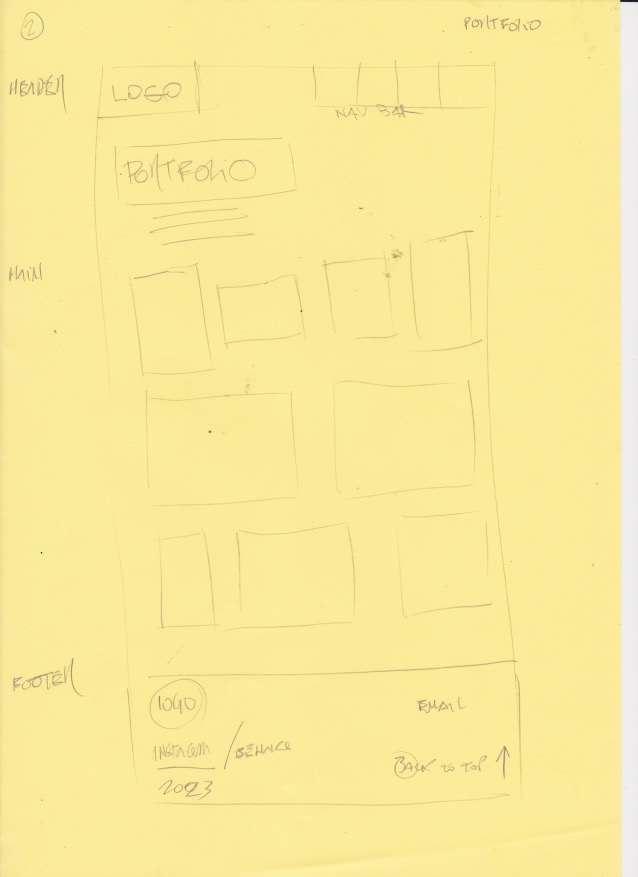 2
PORTFOLIO
HEADER
LOGO
NAV BAR
PORTFOLIO
MAIN
FOOTER
LOGO
EMAIL
INSTAGRAM / BEHANCE
BACK TO TOP
2023